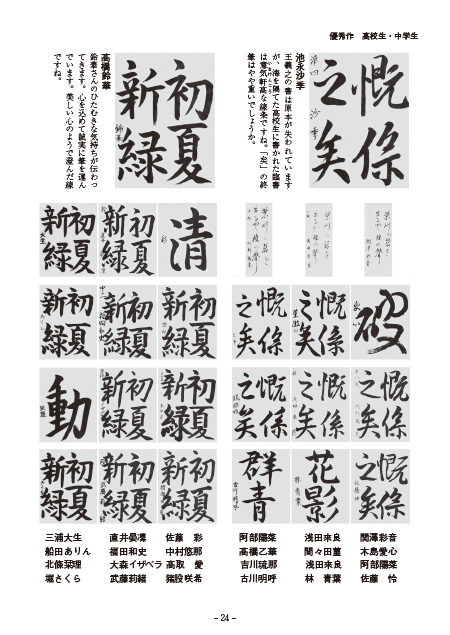 優秀作　高校生・中学生
慨係
之矣
第四　沙季
池永沙季
王羲之の書は原本が失われています
が、海を隔てた高校生に書かれた臨書
は意気軒高な線条ですね。「矣」の終
筆はやや重いでしょうか。
初夏
新緑
鈴華
高橋鈴華
鈴華さんのひたむきな気持ちが伝わっ
てきます。心を込めて誠実に筆を運ん
でいます。美しい心のようで澄んだ線
ですね。
清
初夏
新緑
初夏
新緑
破
慨係
之矣
慨係
之矣
初夏
新緑
初夏
新緑
初夏
新緑
慨係
之矣
慨係
之矣
慨係
之矣
初夏
新緑
初夏
新緑
動
慨係
之矣
花影
林　青葉
群青
古川明呼
初夏
新緑
初夏
新緑
初夏
新緑
三浦大生　直井晏凜　佐藤　彩　阿部陽菜　浅田来良　関澤彩音
船田ありん　福田和史　中村悠那　高橋乙華　間々田菫　木島愛心
北條栞理　大森イザベラ　高取　愛　吉川琉那　浅田来良　阿部陽菜
堀さくら　武藤莉緒　猪股咲希　古川明呼　林　青葉　佐藤　怜
− 24 −